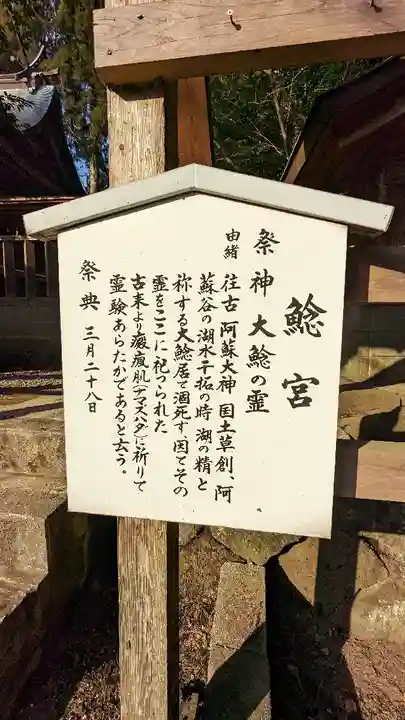 鯰宮
祭神 大鯰の霊
由緒
往古 阿蘇大神 国土草創、阿
蘇谷の湖水干拓の時 湖の精と
祢する大鯰居て涸死す、因てその
霊をここに祀つられた
古来より癜痕肌(ナマズハダ)に祈りて
霊験あらたかであると去う。
祭典 三月二十八日